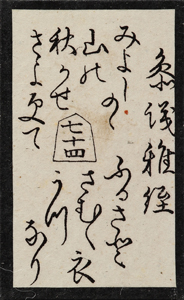 参議雅経
みよしのゝ
山の
秋かせ
さよ更て
ふるさと
さむく衣
うつ
なり
七十四